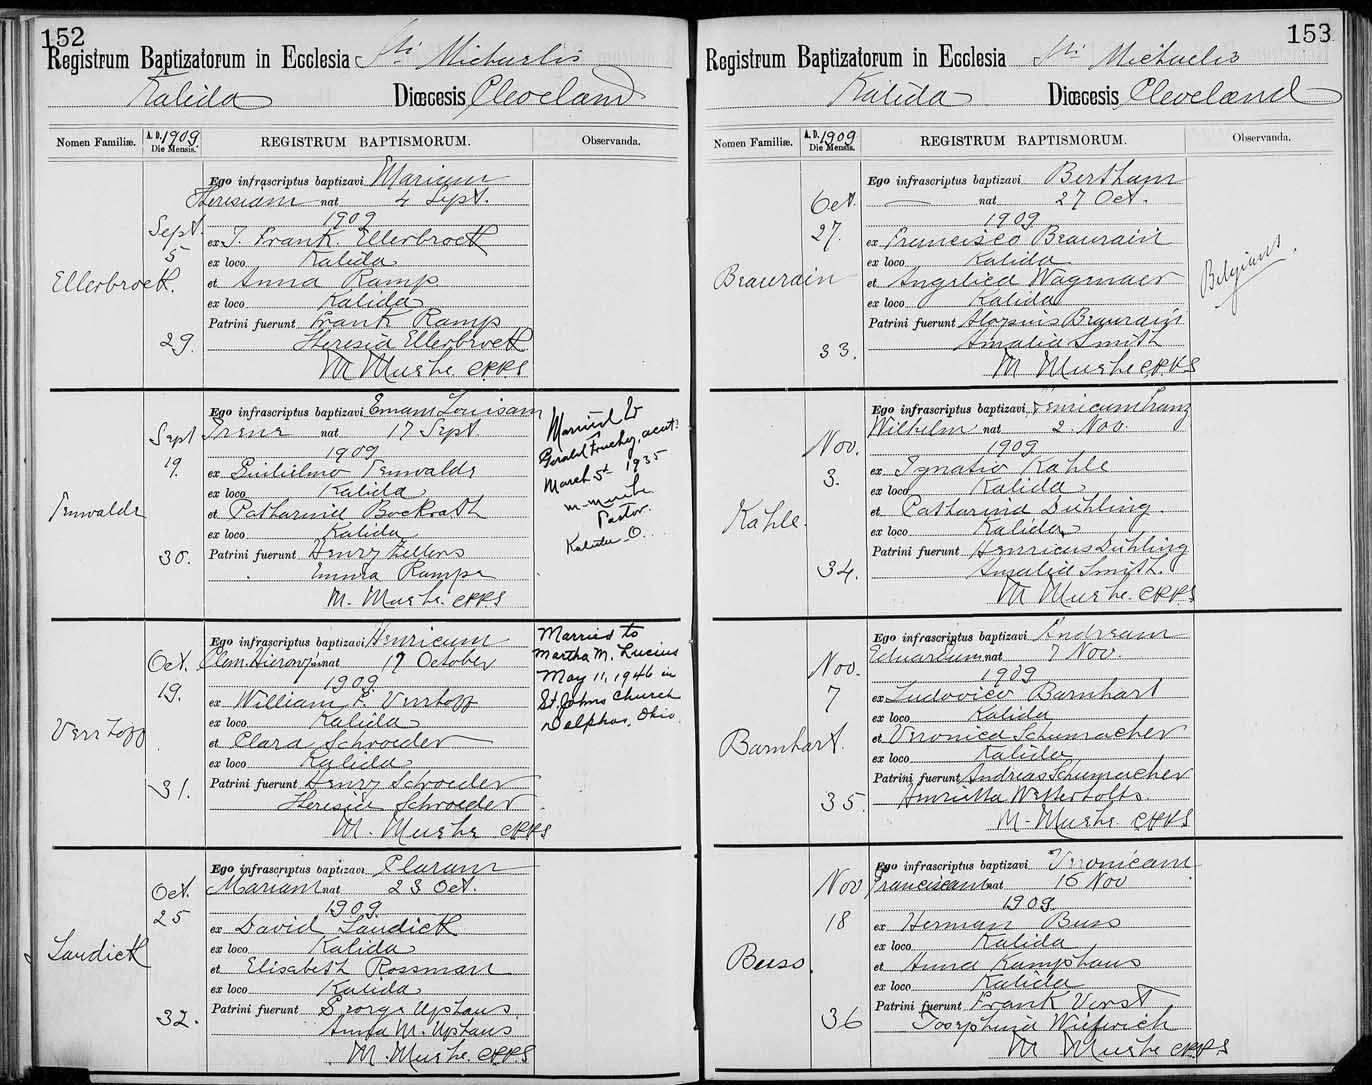 152
Registrum Baptizatorum in Ecclesia Sti Michaelis
Kalida Diœcesis Cleveland
Nomen Familiæ. A.D. 1909 Die Mensis. REGISTRUM BAPTISMORUM. Observanda.
Ellerbrock.
Sept.
5
29.
Ego infrascriptus baptizavi Mariam
Theresiam nat 4 Sept.
1909
ex J. Frank Ellerbrock
ex loco Kalida
et Anna Ramp
ex loco Kalida
Patrini fuerunt Frank Ramp
Theresia Ellerbrock
M Muehe C.P.P.S
Sept
19.
30.
Ego infrascriptus baptizavi Emam Louisam
Irene nat 17 Sept.
1909
ex Guilielmo
ex loco Kalida
et Catharina Bockrath
ex loco Kalida
Patrini fuerunt Henry Zellers
Emma Rampe
M. Muehe. C.P.P.S
Married to
Gerald
March 5th 1935
M. Muehe
Pastor.
Kalida O.
Verhoff
Oct.
19.
31.
Ego infrascriptus baptizavi Henricum
Clem. nat 17 October
1909
ex William F. Verhoff
ex loco Kalida
et Clara Schroeder
ex loco Kalida
Patrini fuerunt Henry Schroeder
Theresia Schroeder
M. Muehe C.P.P.S
Married to
Martha M. Lucius
May 11, 1946 in
St. Johns Church
Delphos, Ohio.
Laudick
Oct.
25
32.
Ego infrascriptus baptizavi Claram
Mariam nat 23 Oct.
1909
ex David Laudick
ex loco Kalida
et Elisabeth Rossman
ex loco Kalida
Patrini fuerunt George Uphaus
Anna M. Uphaus
M. Muehe C.P.P.S
153
Registrum Baptizatorum in Ecclesia Sti Michaelis
Kalida Diœcesis Cleveland
Nomen Familiæ. A.D. 1909 Die Mensis. REGISTRUM BAPTISMORUM. Observanda.
Beaurain
Oct.
27.
33.
Ego infrascriptus baptizavi Bertham
nat 27 Oct.
1909
ex Francisco Beaurain
ex loco Kalida
et Angelica Wagmaer
ex loco Kalida
Patrini fuerunt Aloysius Beaurain
Amalia Smith
M Muehe C.P.P.S
Belgians.
Kahle.
Nov.
3.
34.
Ego infrascriptus baptizavi Henricum Franz
Wilhelm nat 2. Nov.
1909
ex Ignatio Kahle
ex loco Kalida
et Catharina Duhling.
ex loco Kalida
Patrini fuerunt Henricus Duhling
Amalia Smith.
M Muehe. C.P.P.S
Barnhart.
Nov.
7
35.
Ego infrascriptus baptizavi Andream
Eduardum nat 7 Nov.
1909
ex Ludovico Barnhart
ex loco Kalida
et Veronica Schumacher
ex loco Kalida
Patrini fuerunt Andreas Schumacher
Henrietta Westerholts.
M. Muehe. C.P.P.S
Buss.
Nov
18
36
Ego infrascriptus baptizavi Veronicam
Franciscam nat 16 Nov
1909
ex Herman Buss
ex loco Kalida
et Anna Kamphaus
ex loco Kalida
Patrini fuerunt Frank Vorst
Josephina
M Muehe C.P.P.S